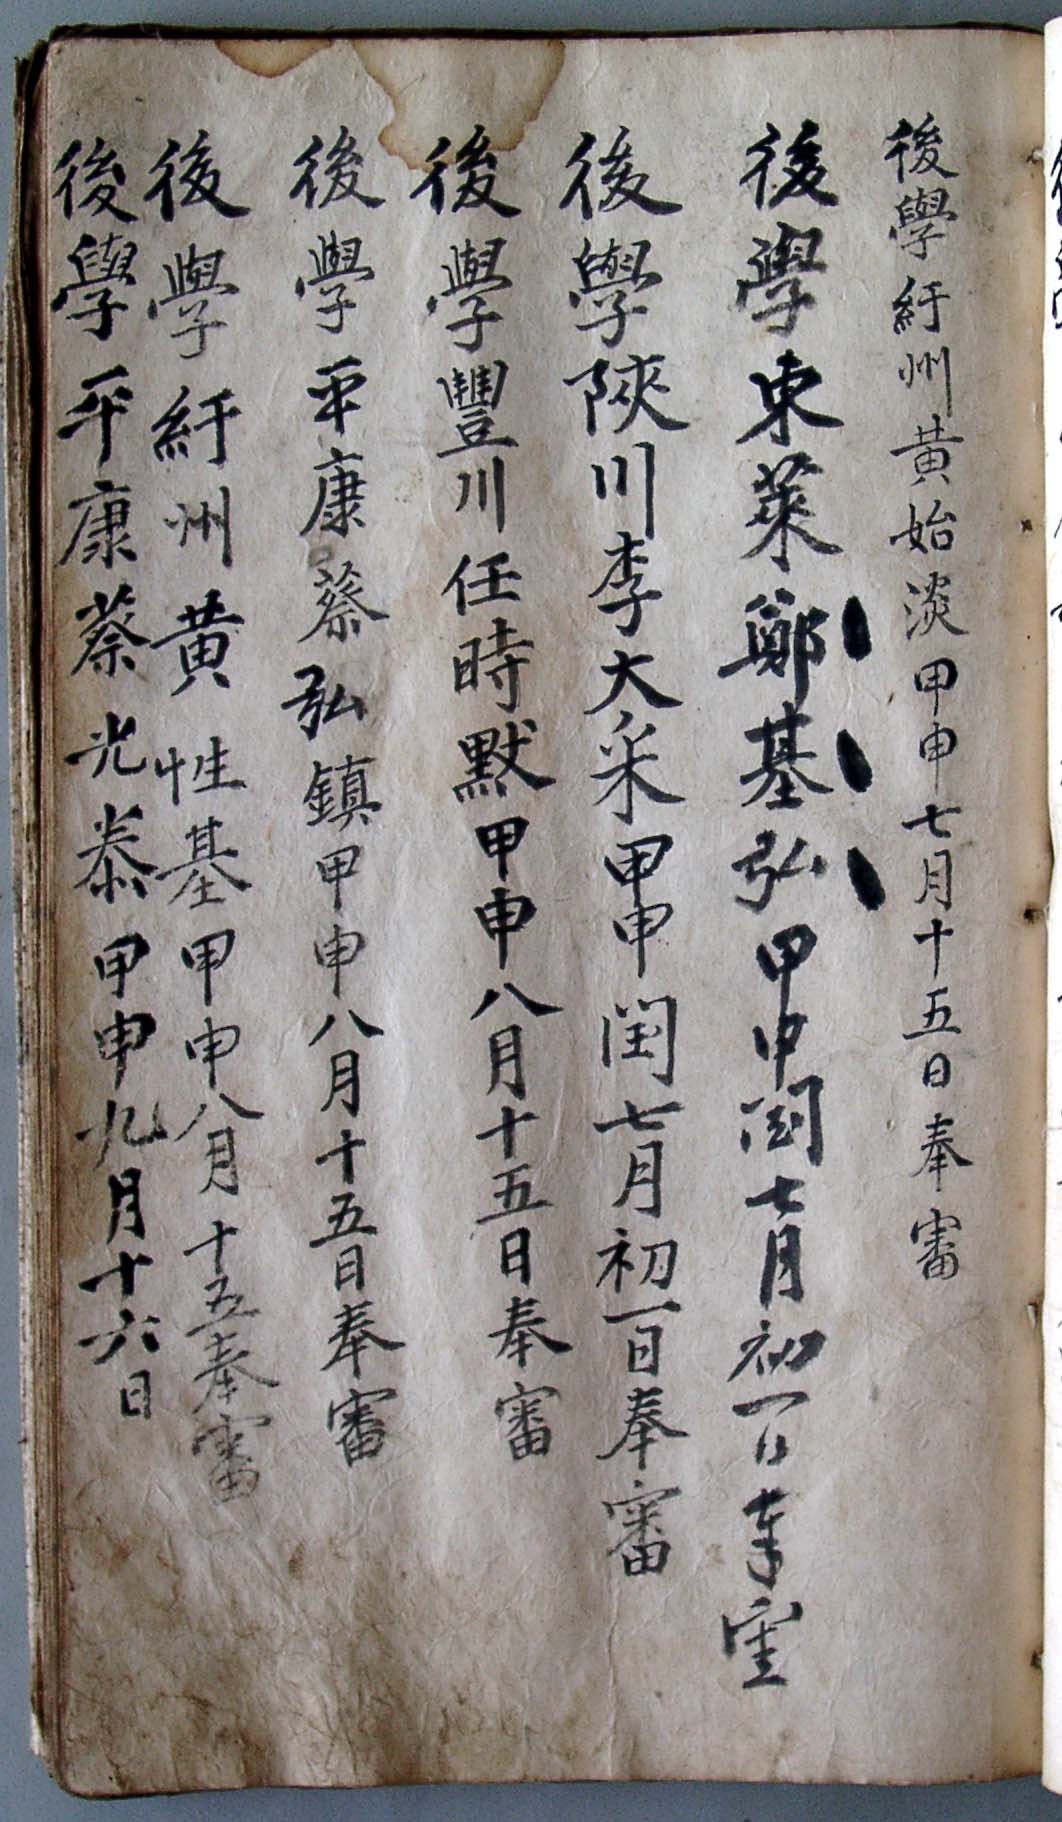 後學紆州黃始淡甲申七月十五日奉審
後學東萊鄭基弘甲申閏七月初一日奉審
後學陜川李大采甲申閏七月初一日奉審
後學豐川任時默甲申八月十五日奉審
後學平康蔡弘鎮甲申八月十五日奉審
後學紆州黃性基甲申八月十五奉審
後學平康蔡光泰甲申九月十六日